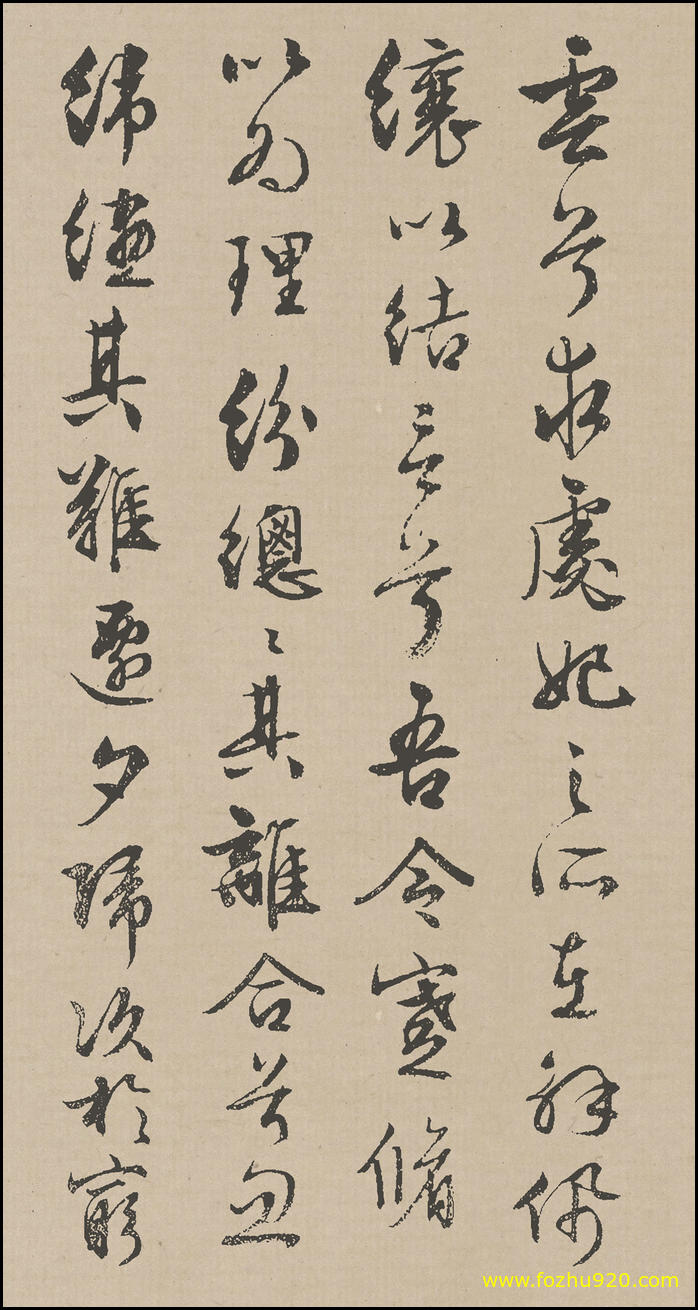 雲兮求處妃之所在解佩
纕以結言兮吾令蹇脩
以為理紛總〻其離合兮忽
緯繣其難遷夕歸次於窮
www.fozhu920.com